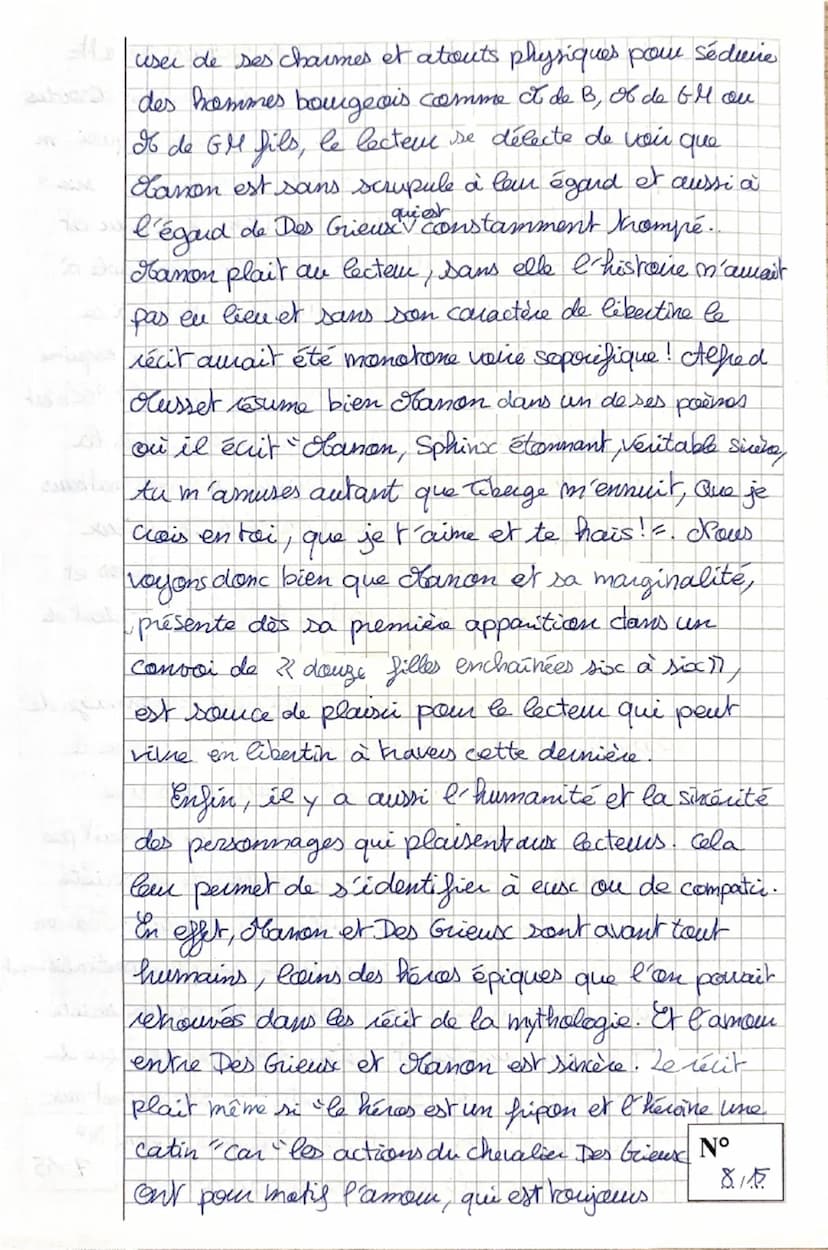 user de ses charmes et atouts physiques pour séduire
des hommes bourgeois comme M de B, M de GM ou
M de GM fils, le lecteur se délecte de voir que
Manon est sans scrupule à leur égard et aussi à
l'égard de Des Grieux qui est constamment trompé.
Manon plait au lecteur, sans elle l'histoire n'aurait
pas eu lieu et sans son caractère de libertine le
récit aurait été monotone voire soporifique ! Alfred
Musset résume bien Manon dans un de ses poèmes
où il écrit "Manon, Sphinx étonnant, véritable sirène,
tu m'amuses autant que Tiberge m'ennuit, Que je
crois en toi, que je t'aime et te hais!". Nous
voyons donc bien que Manon et sa marginalité,
présente dès sa première apparition dans un
convoi de « douze filles enchaînées six à six »,
est source de plaisir pour le lecteur qui peut
vivre en libertin à travers cette dernière.
Enfin, il y a aussi l'humanité et la sincérité
des personnages qui plaisent aux lecteurs. Cela
leur permet de s'identifier à eux ou de compatir.
En effet, Manon et Des Grieux sont avant tout
humains, loins des héros épiques que l'on pouvait
retrouvés dans les récit de la mythologie. Et l'amour
entre Des Grieux et Manon est sincère. Le récit
plait même si "le héros est un fripon et l'héroïne une
catin" car "les actions du chevalier Des Grieux
ont pour motif l'amour, qui est toujours
N°
8/15